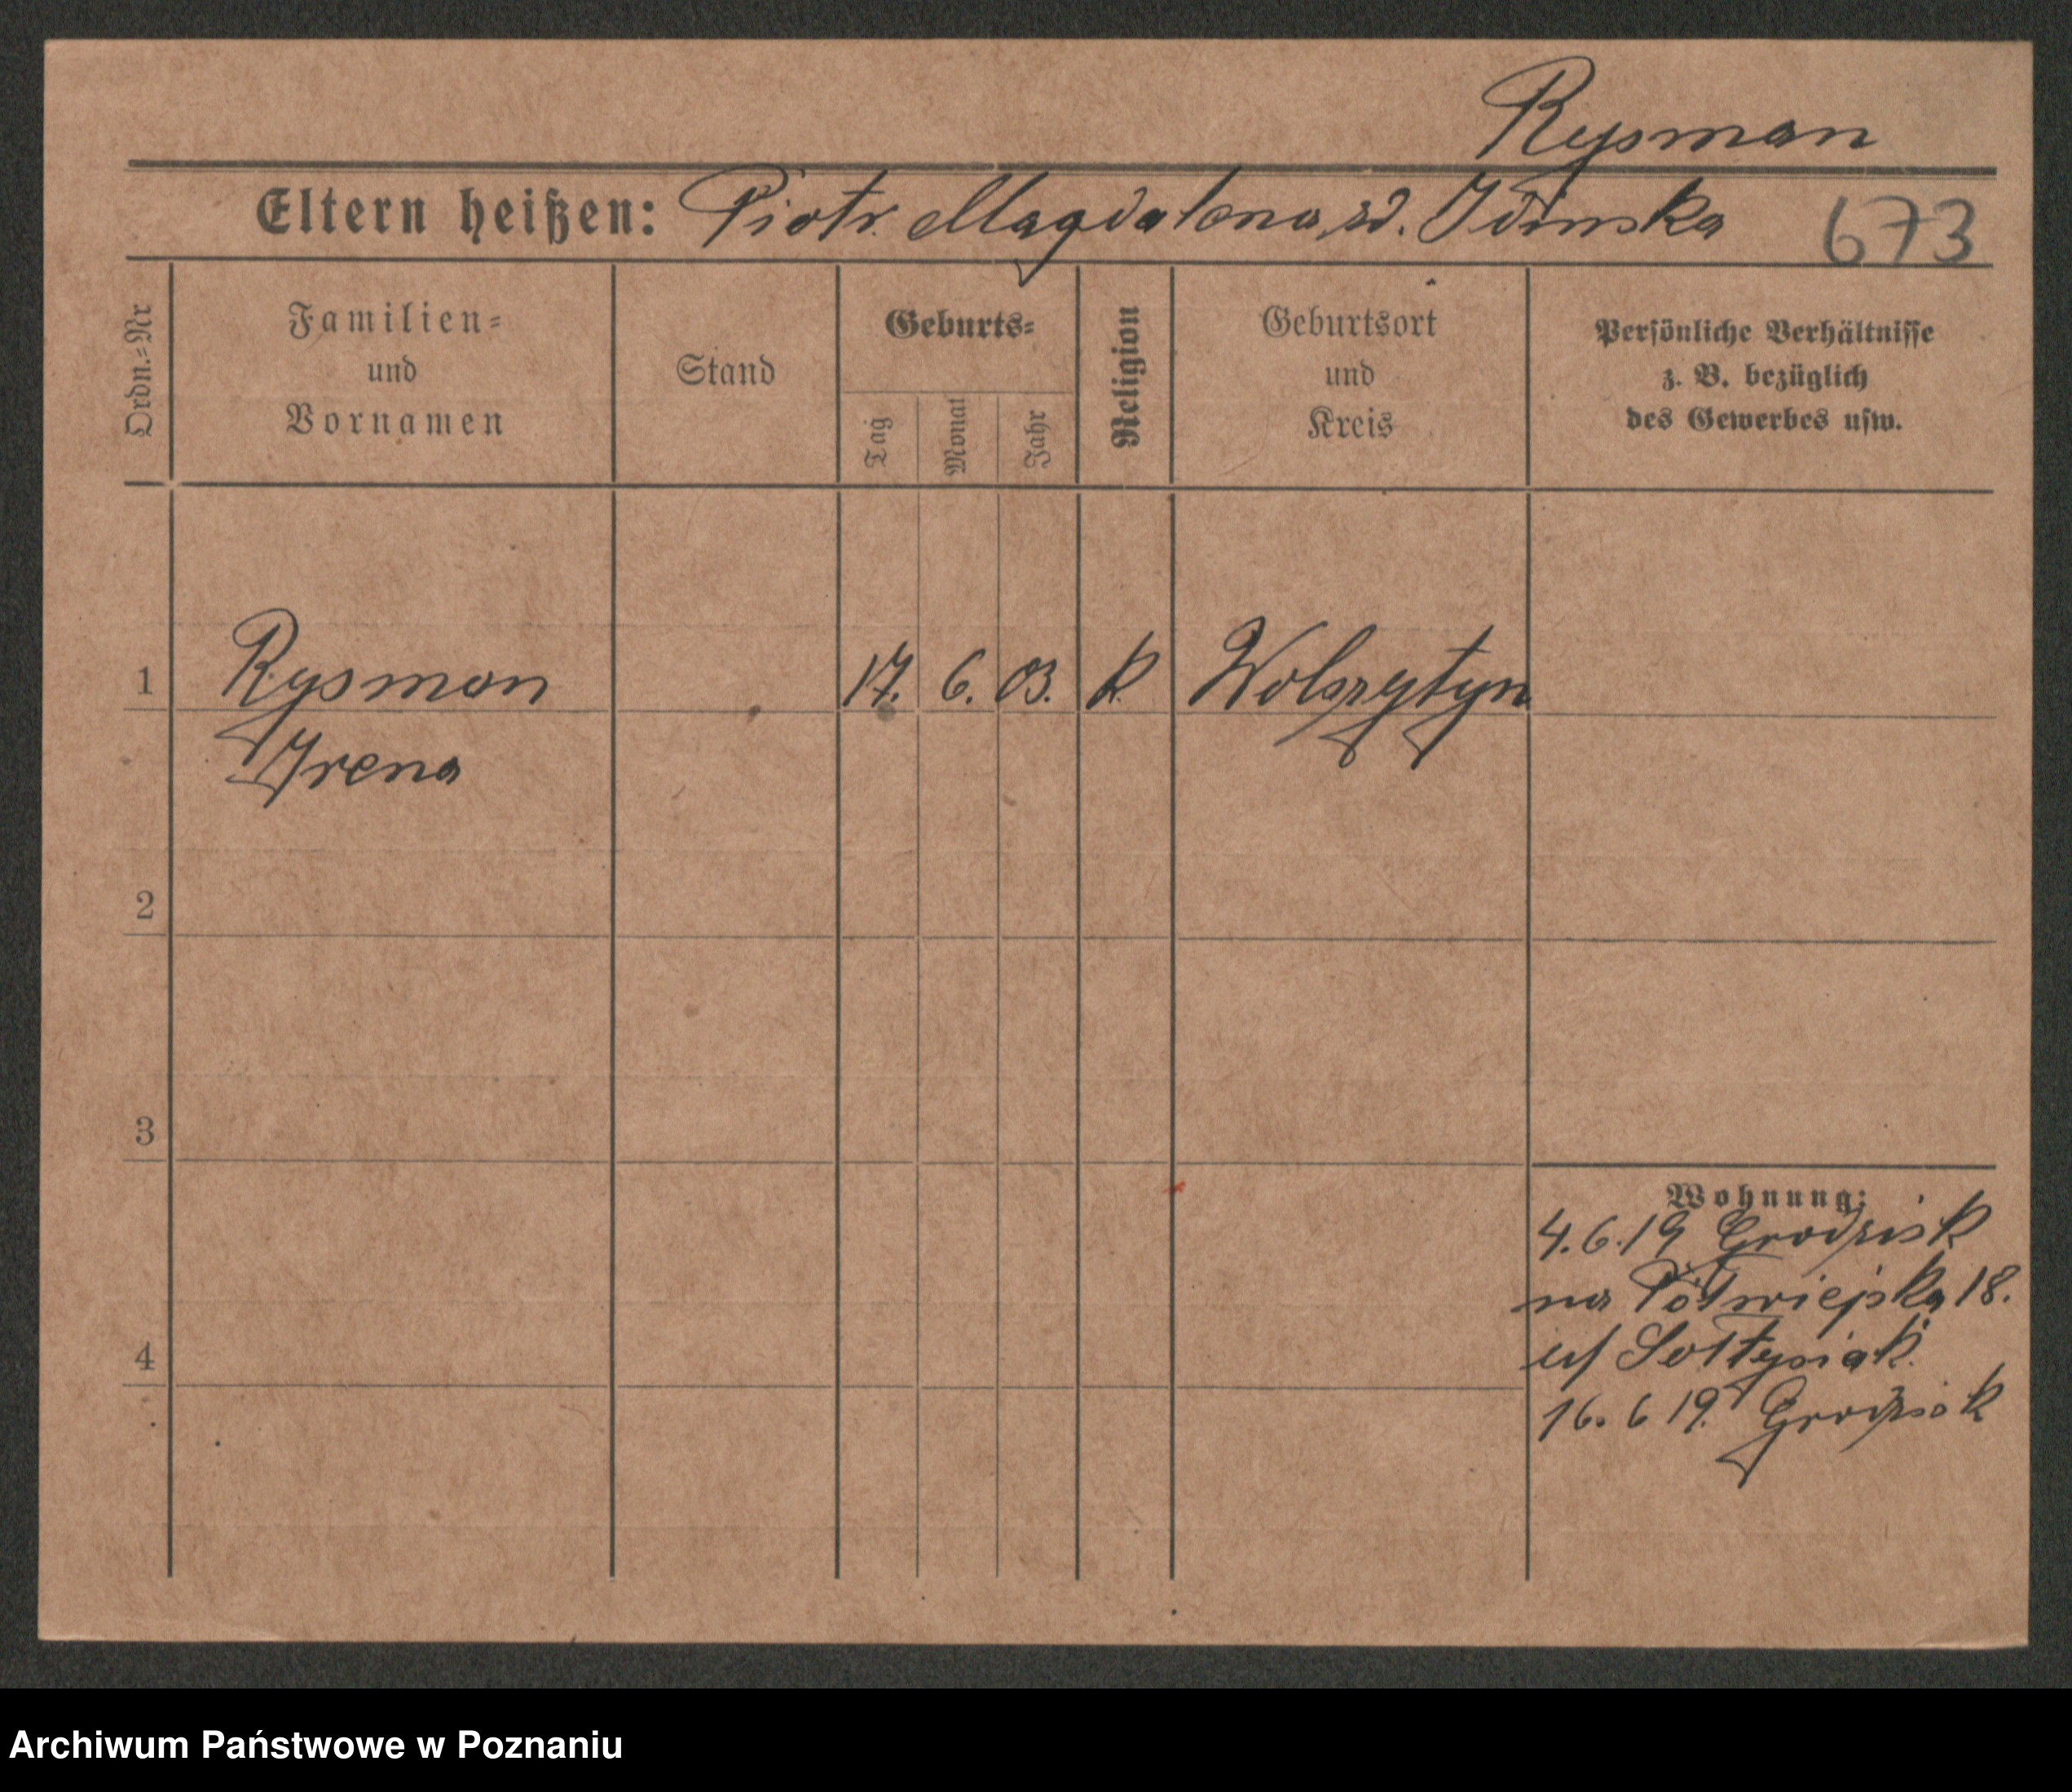 Rysman
Eltern heißen: Piotr. Magdalena, zd. 673
Ordn.=Nr
Familien=
und
Vornamen
Stand
Geburts=
Tag
Monat
Jahr
Religion
Geburtsort
und
Kreis
Persönliche Verhältnisse
z. B. bezüglich
des Gewerbes usw.
1 Rysman 17. 6. 03. k. Wolsztyn
Irena
2
3
Wohnung:
4.6.19 Grodzisk
na Półwiejska 18.
Sołtysiak.
4
16. 6 19. Grodzisk
Archiwum Państwowe w Poznaniu